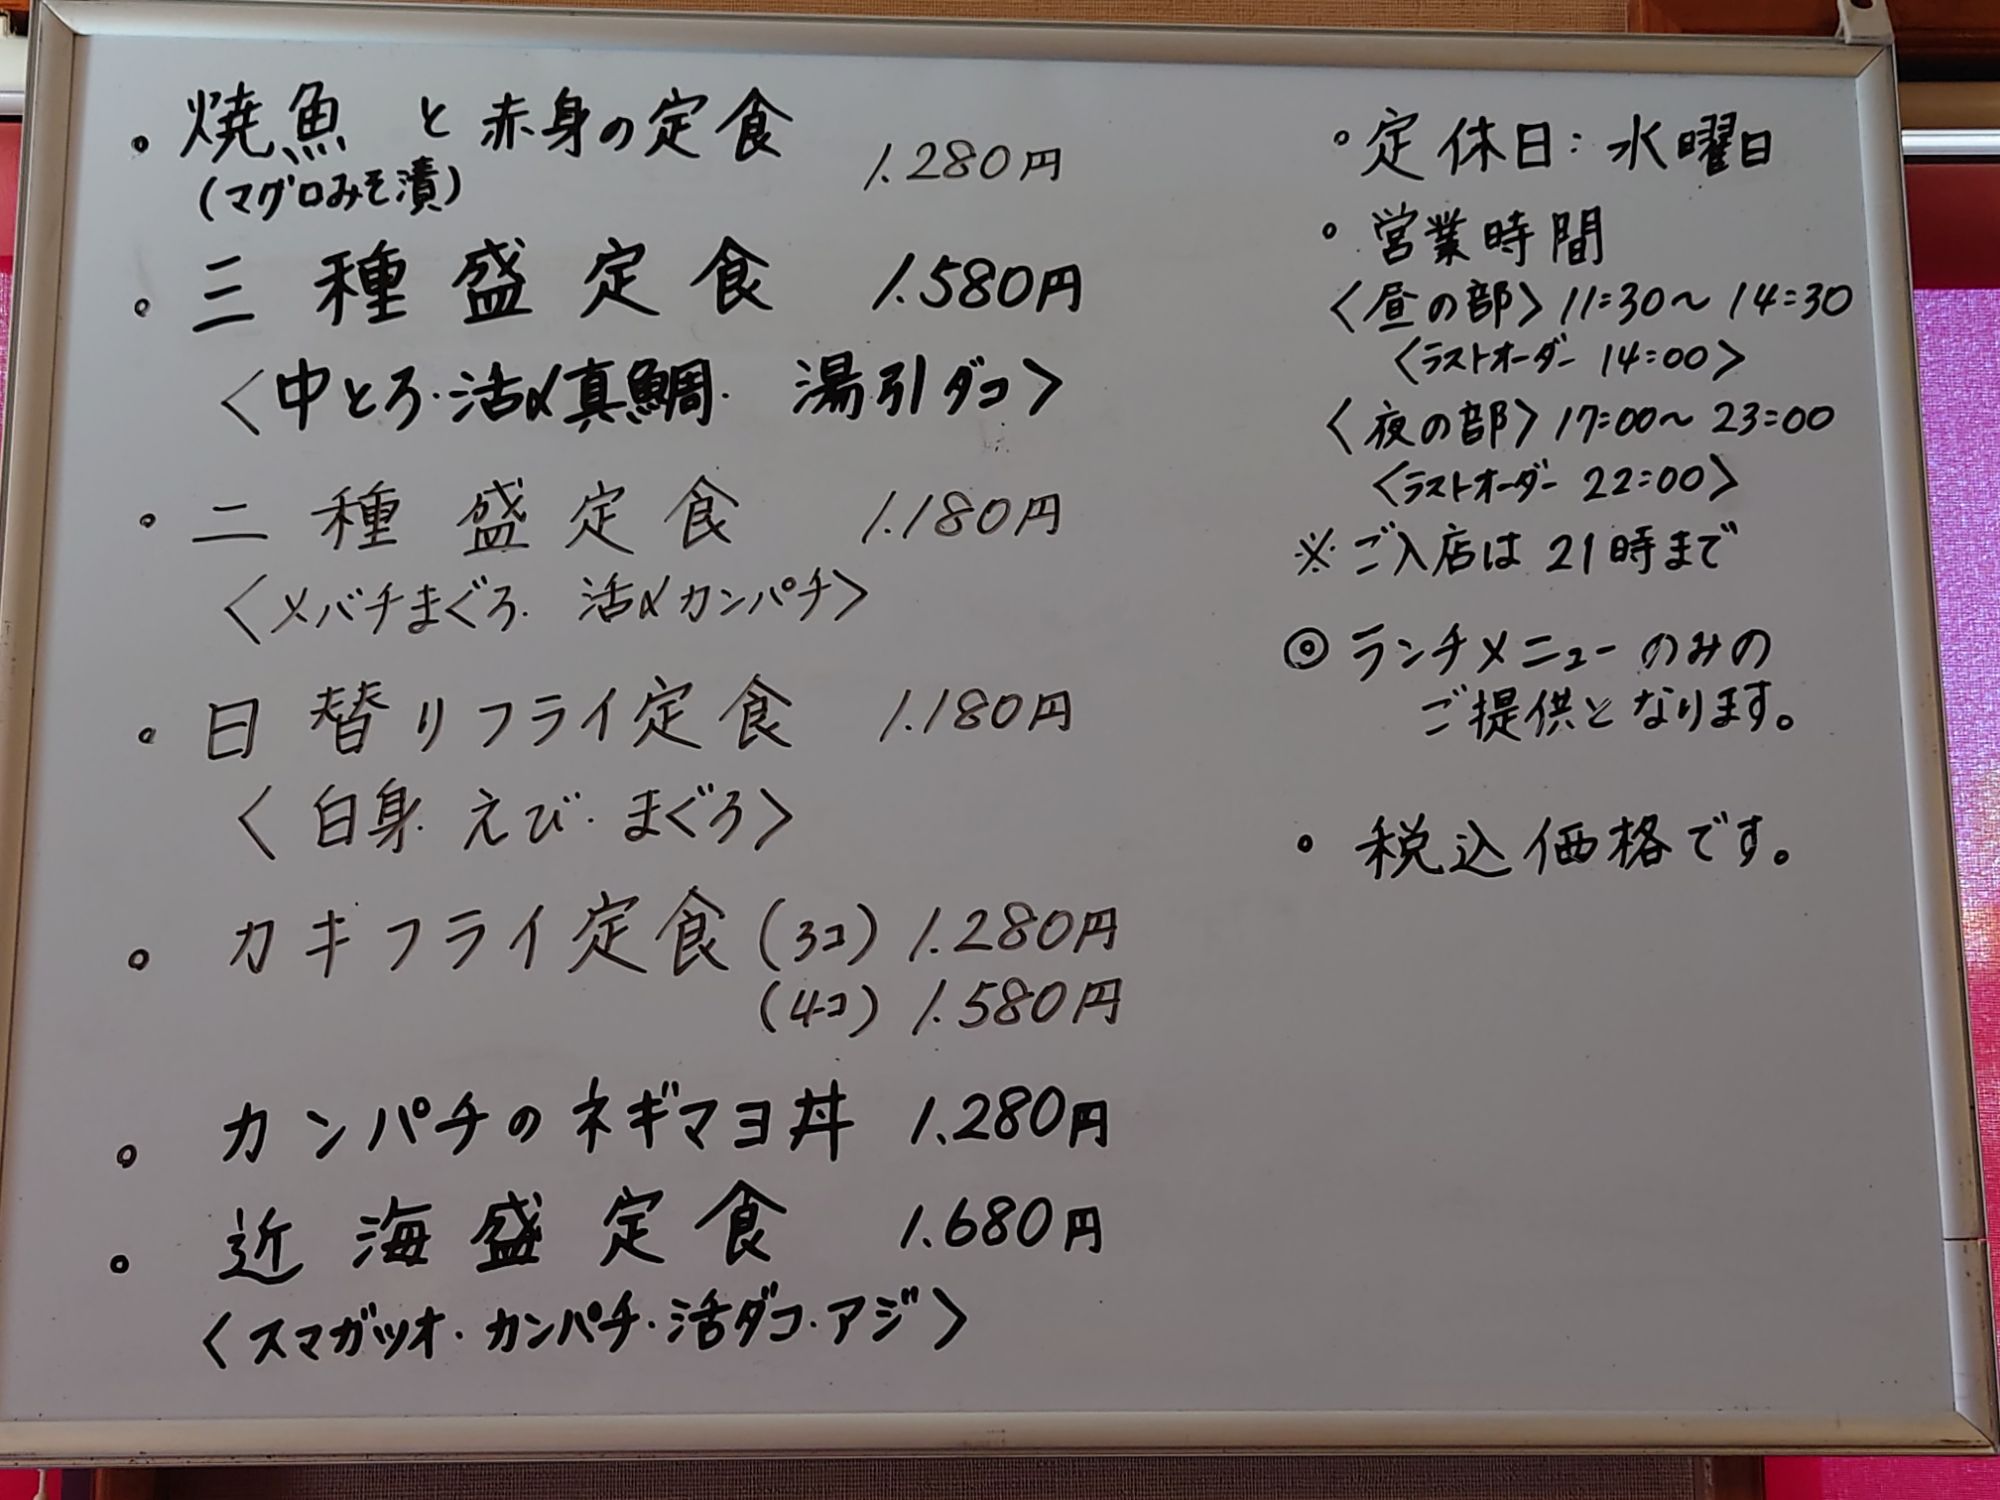 。焼魚 と赤身の定食 1.280円
(マグロみそ漬)
。三種盛定食 1.580円
〈中とろ・活〆真鯛・湯引ダコ〉
。二種盛定食 1.180円
〈メバチまぐろ・活〆カンパチ〉
。日替りフライ定食 1.180円
〈白身・えび・まぐろ〉
。カキフライ定食(3コ) 1.280円
(4コ) 1.580円
。カンパチのネギマヨ丼 1.280円
。近海盛定食 1.680円
〈スマガツオ・カンパチ・活ダコ・アジ〉
。定休日:水曜日
。営業時間
〈昼の部〉11:30〜14:30
〈ラストオーダー 14:00〉
〈夜の部〉17:00〜23:00
〈ラストオーダー 22:00〉
※ご入店は21時まで
◎ランチメニューのみの
ご提供となります。
。税込価格です。